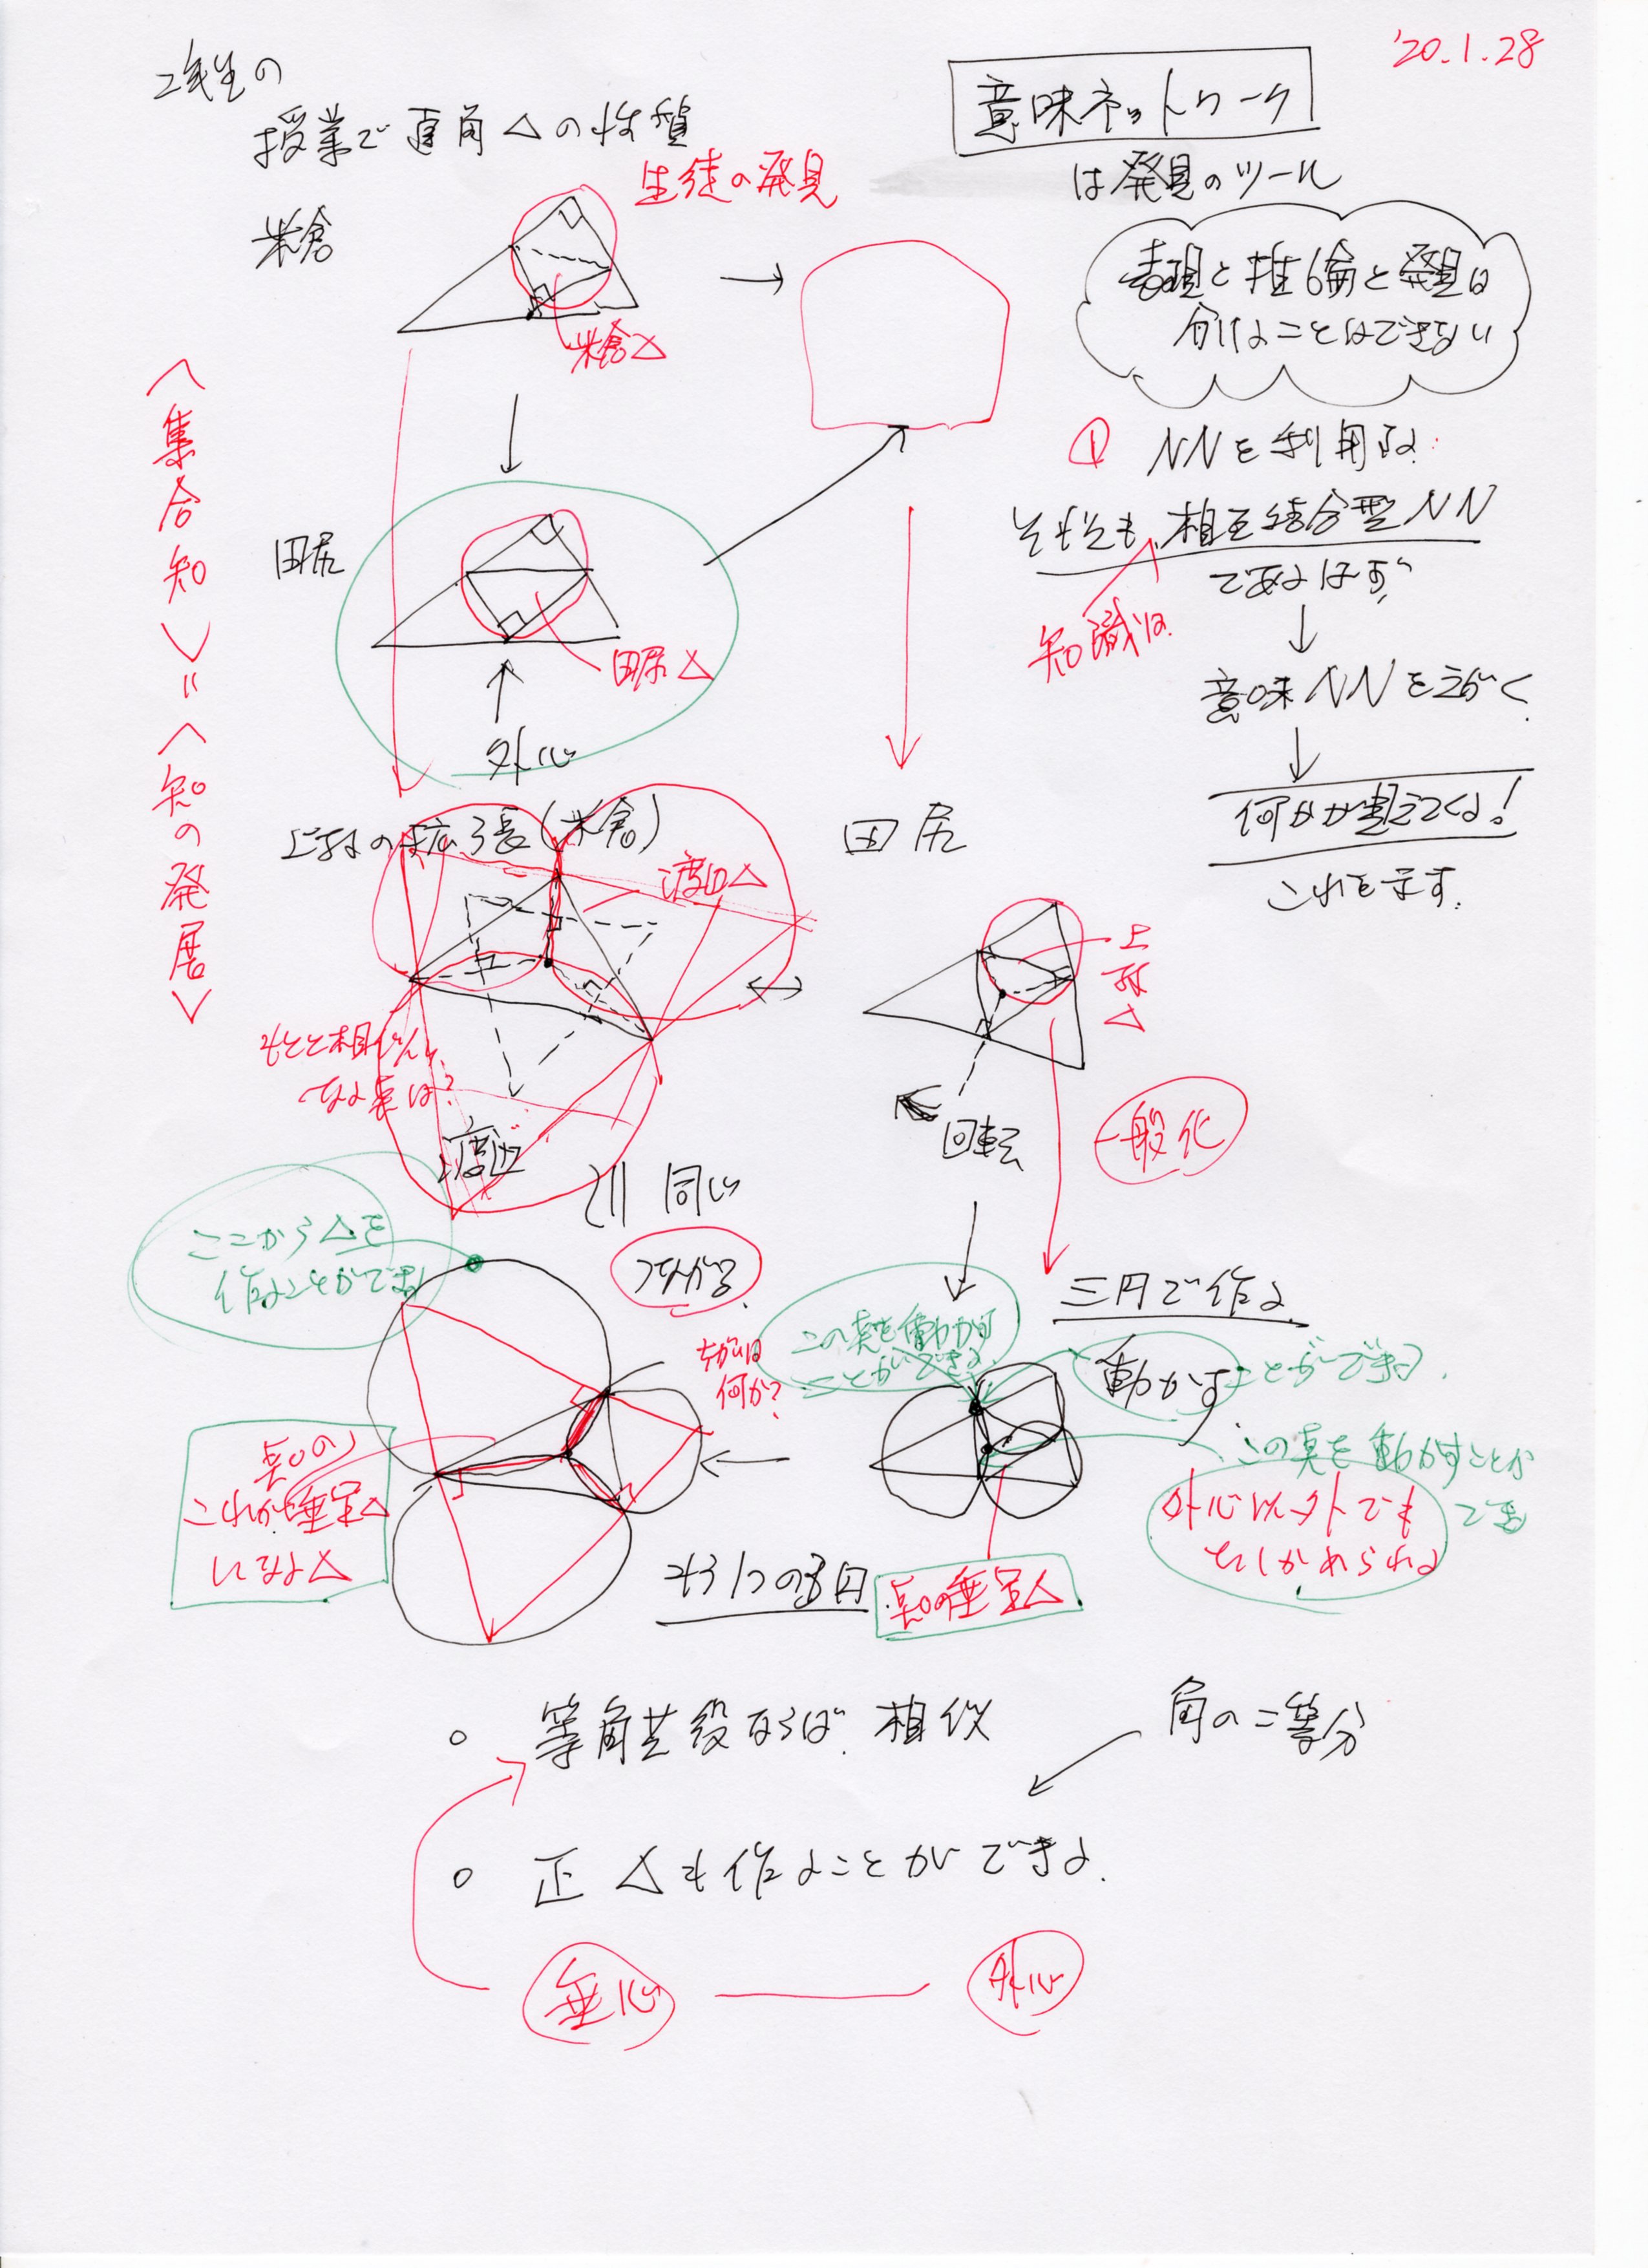 '20.1.28
2年生の
授業で直角△の性質
意味ネットワーク
は発見のツール
生徒の発見
米倉
米倉△
表現と推論と発見は
分けることはできない
① NNを利用する
そもそも、相互結合型NN
であるはず
知識は
意味NNをえがく
何かが見えてくる!
これを示す.
<集合知>=<知の発展>
田尻
田尻△
外心
の拡張(米倉)
渡辺△
田尻
上
△
もとと相似に
なる点は?
渡辺
回転
一般化
同じ
つながる
ここから△を
作ることができる
三円で作る
この点を動かす
ことができる
動かすことができる.
ちがいは
何か?
この点を動かすことが
できる
外心以外でも
たしかめられる
点Oの
これが垂足△
になる△
もう1つの3円
点Oの垂足△
○ 等角共役ならば 相似
角の二等分
○ 正△も作ることができる.
垂心
外心